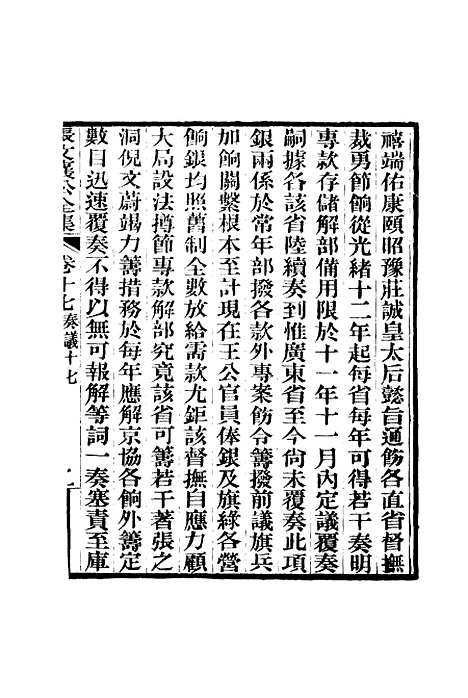 禧端佑康頤昭豫莊誠皇太后懿旨通飭各直省督撫
裁勇節餉從光緒十二年起每省每年可得若干奏明
專款存儲解部備用限於十一年十一月內定議覆奏
嗣據各該省陸續奏到惟廣東省至今尙未覆奏此項
銀兩係於常年部撥各款外專案飭令籌撥前議旗兵
加餉關繫根本至計現在王公官員俸銀及旗綠各營
餉銀均照舊制全數放給需款尤鉅該督撫自應力顧
大局設法撙節專款解部究竟該省可籌若干著張之
洞倪文蔚竭力籌措務於每年應解京協各餉外籌定
數目迅速覆奏不得以無可報解等詞一奏塞責至庫
張文襄公全集 卷十七 奏議十七 一